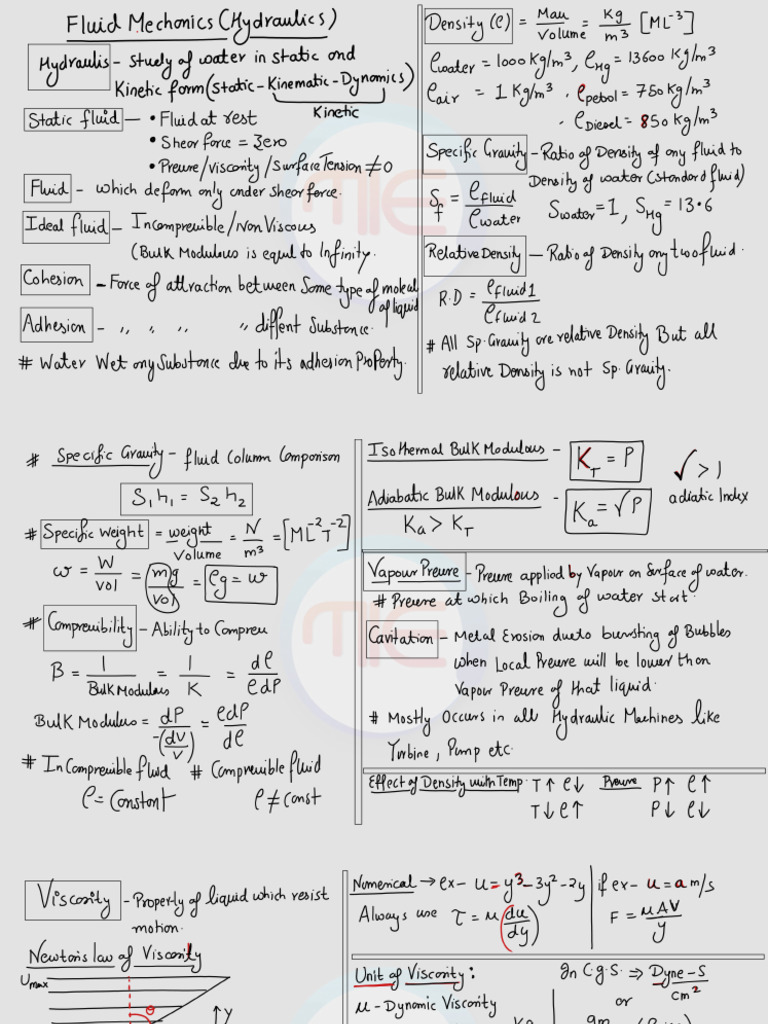 Fluid Mechonics (Hydraulics)
Hydraulis - Study of water in static and
Kinetic form (static - Kinematic - Dynamics)
Kinetic
Static fluid - • Fluid at rest
• Shear force = Zero
• Preure/Viscosity/Surface Tension ≠ 0
Fluid - which deform only under shear force.
Ideal fluid - Incompreuible/Non Viscous
(Bulk Modulous is equal to Infinity.
Cohesion - Force of attraction between Same type of molecul of liquid
Adhesion - ,, ,, ,, ,, diffent Substance.
# Water Wet any Substance due to its adhesion Property.
Density (ρ) = Mau/volume = Kg/m³ [ML⁻³]
ρwater = 1000 Kg/m³, ρHg = 13600 Kg/m³
ρair = 1 Kg/m³ . ρpetrol = 750 Kg/m³
. ρDiesel = 850 Kg/m³
Specific Gravity - Ratio of Density of any fluid to
Density of water (standard fluid)
Sf = ρfluid/ρwater Swater = 1, SHg = 13.6
Relative Density - Ratio of Density any two fluid.
R.D = ρfluid1/ρfluid2
# All Sp. Gravity are relative Density But all
relative Density is not Sp. Gravity.
MIE
# Specific Gravity - fluid Column Comparison
S₁h₁ = S₂h₂
# Specific weight = weight/Volume = N/m³ = [ML⁻²T⁻²]
ω = W/vol = mg/vol = ρg = w
# Compreuibility - Ability to Compreu
B = 1/Bulk Modulous = 1/K = dρ/ρdP
Bulk Modulus = dP/-(dv/v) = ρdP/dρ
# In Compreuible fluid # Compreuible fluid
ρ = Constant ρ ≠ const
Isothermal Bulk Modulous - KT = P
Adiabatic Bulk Modulous - Ka = √P
√ > 1
adiatic Index
Ka > KT
Vapour Preure - Preure applied by Vapour on Surface of water.
# Preure at which Boiling of water start.
Cavitation - Metal Erosion dueto bursting of Bubbles
when Local Preure will be lower than
Vapour Preure of that liquid.
# Mostly Occurs in all Hydraulic Machines like
Turbine, Pump etc.
Effect of Density with Temp. T↑ ρ↓ Preure P↑ ρ↑
T↓ ρ↑ P↓ ρ↓
MIE
Viscosity - Property of liquid which resist
motion.
Newton's law of Viscosity
Umax
θ
↑Y
Numerical → ex - u = y³ - 3y² - 2y
Always use τ = μ(du/dy)
if ex - u = a m/s
F = μAV/y
Unit of Viscosity:
μ - Dynamic Viscosity
In C.g.s. ⇒ Dyne-S/cm²
or